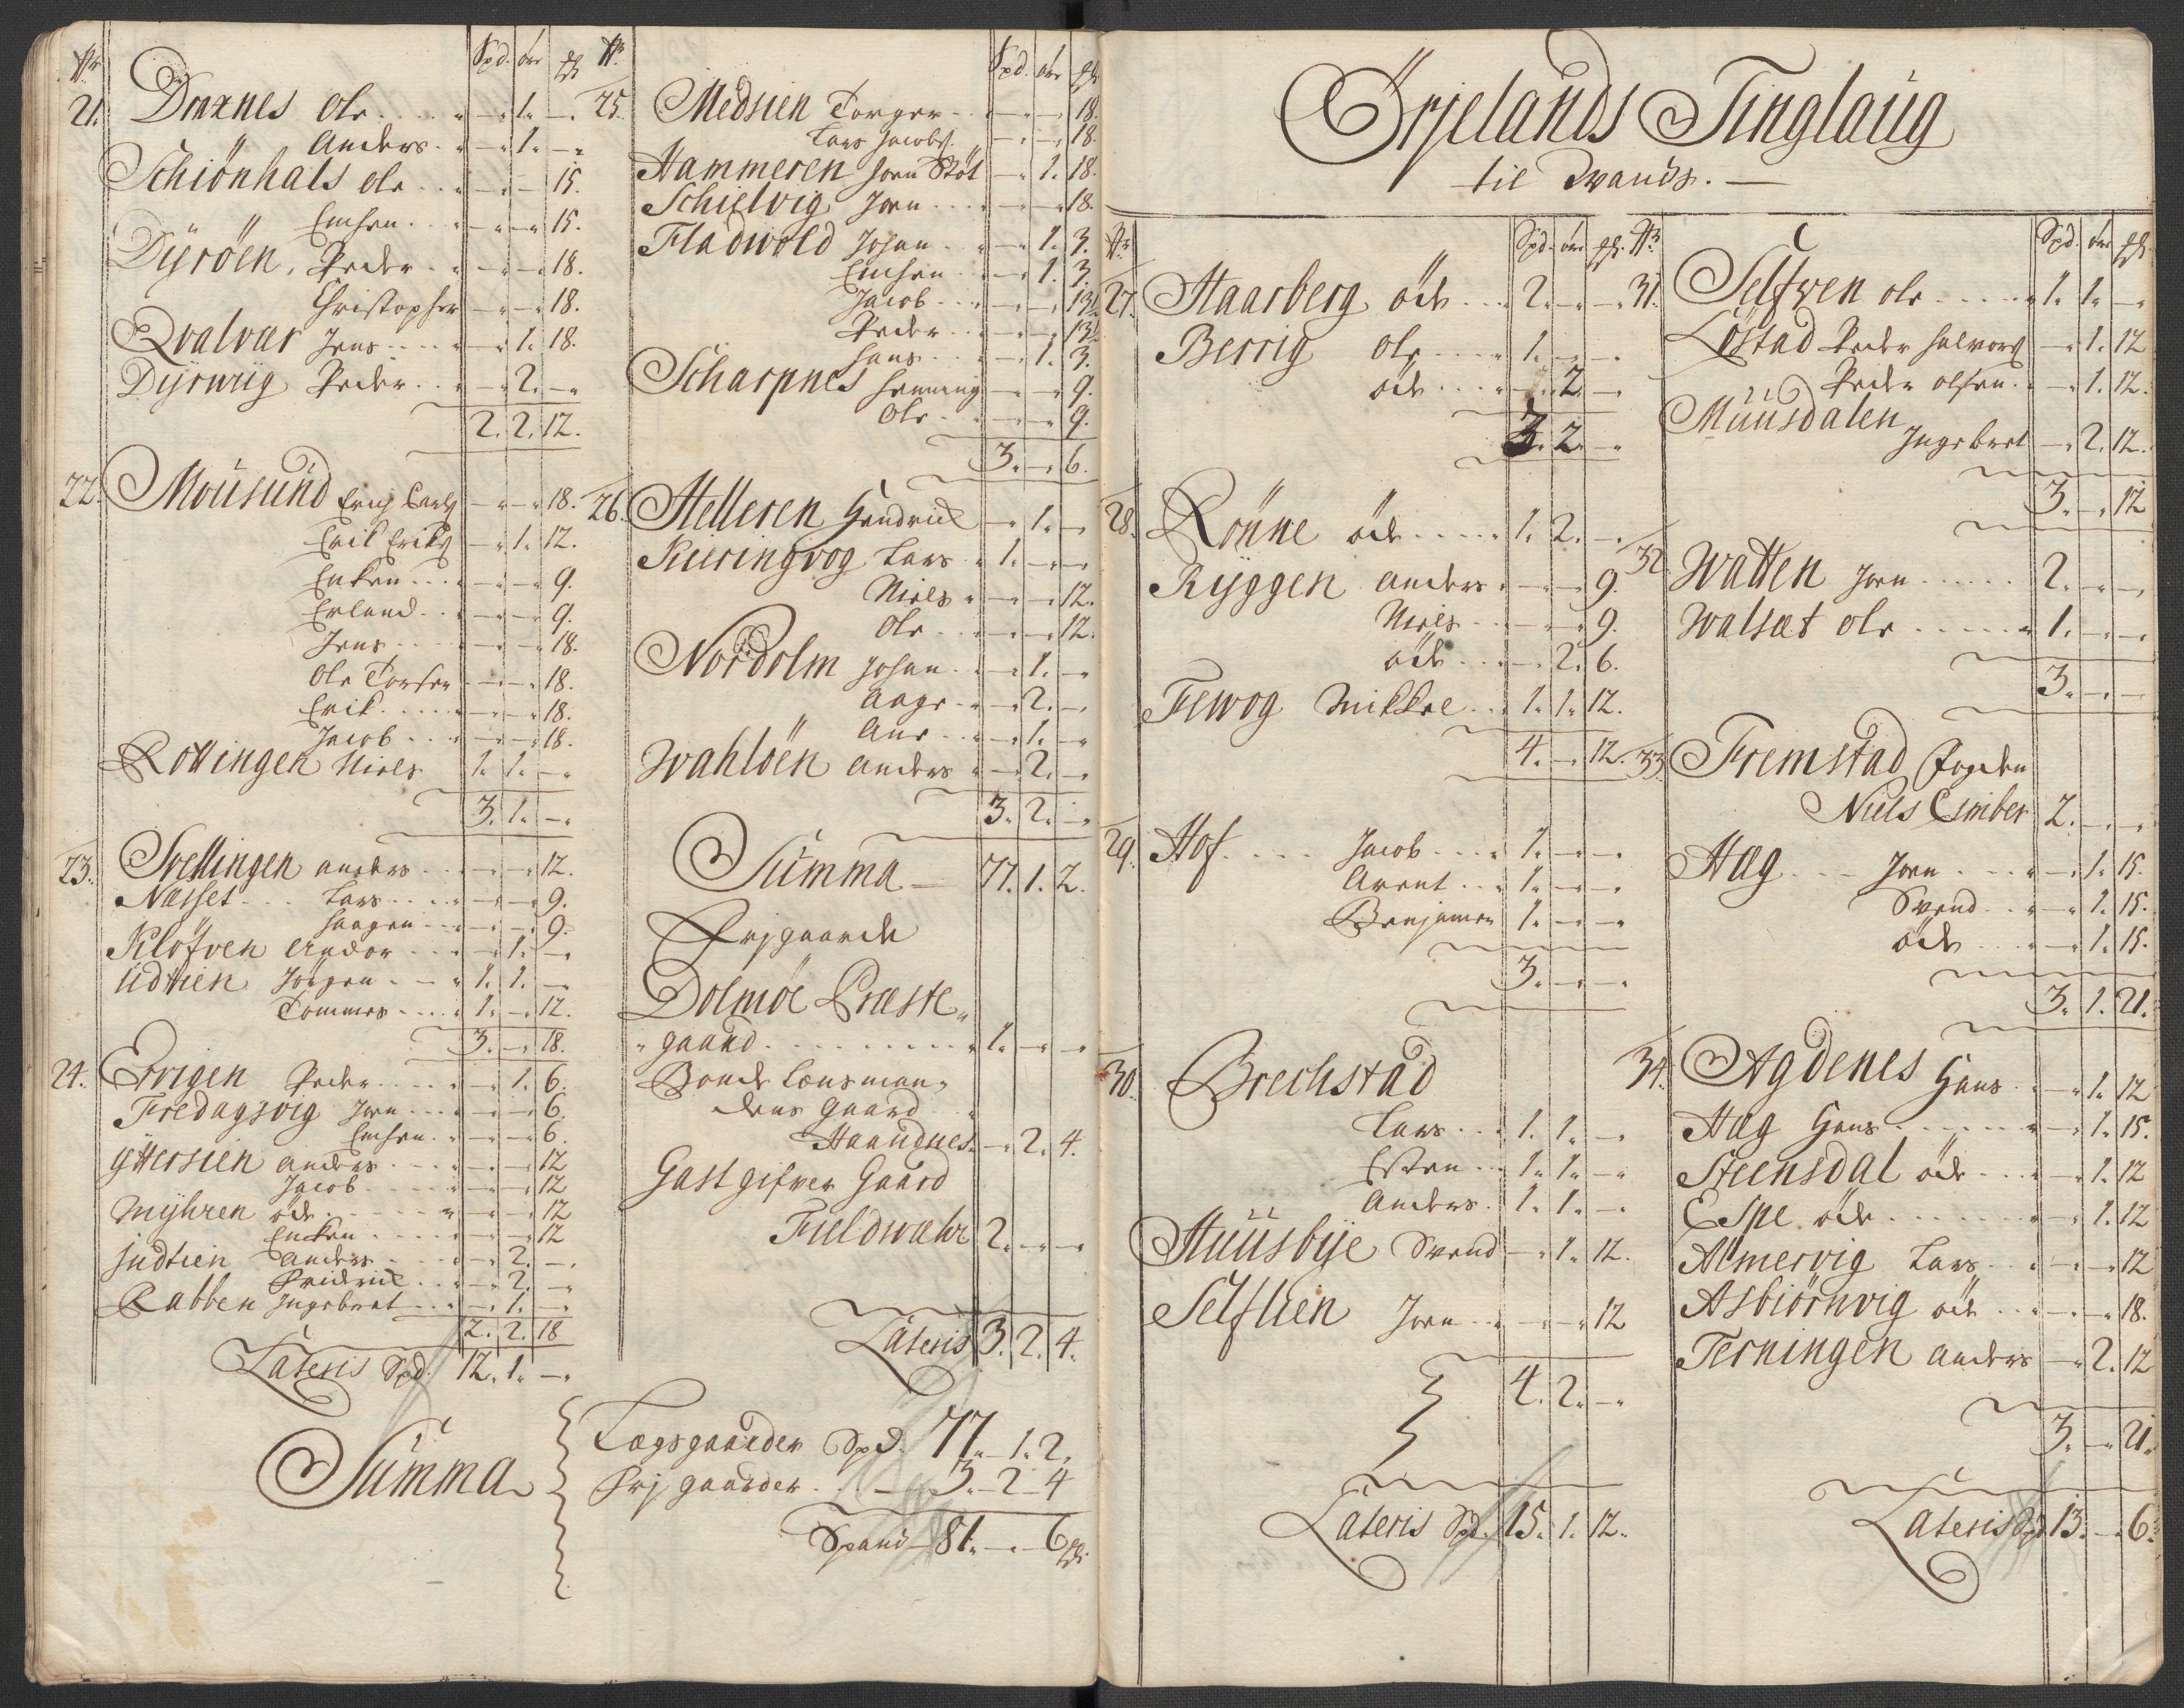 No Spd. ör ℔
21. Draxnes Ole . . . . „ – 1. – „
Anders. „ – 1. – „
Schiönhals Ole . . „ – „ – 15.
Enchen . . . – „ – „ 15.
Dyröen, Peder . – „ – „ 18.
Christopher – „ – „ 18.
Qvalvær Jens . . . . „ – 1. 18.
Dyrwiig Peder . . „ – 2. – „
2. 2. 12.
22. Mousund Erich Carls – „ – „ 18.
Erik Eriks – „ 1. 12.
Enken . . . – „ – „ 9.
Erland . . – „ – „ 9.
Jens . . . . – „ – „ 18.
Ole Torsen – „ – „ 18.
Erik . . . . . – „ – „ 18.
Jacob . . . – „ – „ 18.
Rottingen Niels 1. 1. – „
3. 1. – „
23. Svellingen anders . . – „ – „ 12.
Næsset . . . Lars . . . . – „ – „ 9.
Haagen . . . – „ – „ 9.
Klöfven Andor . . . – „ 1. – „
Udtien Jörgen . – – „ 1. 1. – „
Tommes . . . . 1. – „ 12.
3. – „ 18.
24. Ervigen Peder . . . . . – „ 1. 6.
Fredagsvig Joen . . . – „ – „ 6.
Enchen . – „ – „ 6.
yttersien anders . . . – „ – „ 12
Jacob . . . . – „ – „ 12
Myhren öde . . . . . – „ – „ 12
Encken . . . . – „ – „ 12
Jndtien anders . . . . – „ 2. – „
Fridrich . . . – „ 2. – „
Rabben Ingebret . . – „ 1. – „
2. 2. 18
Lateris Spd. 12. 1. – „
No Spd. ör ℔
25. Medsien Torger . . – „ – „ 18.
Lars Jacobs. – „ – „ 18.
Hammeren Joen Stöt – „ 1. 18.
Schielvig Joen . . . – „ – „ 18.
Fladwold Johan . . – „ 1. 3.
Enchen . . – „ 1. 3
Jacob . . . – „ – „ 13½
Peder . . . – „ – „ 13½
Hans . . . – „ 1. 3.
Scharpnes Henning – „ – „ 9.
Ole . . . . – „ – „ 9.
3. – „ 6.
26. Helleren Hendrich – „ 1. – „
Kieringvog Lars . „ 1. – „ –
Niels „ – „ – „ 12.
Ole . . . – „ – „ 12.
Nordolm Johan . . – „ 1. – „
Aage . . – „ 2. – „
Ane . . . – „ 1. – „
Wahlöen anders „ – „ 2. – „
3. 2. – „
Summa – 77. 1. 2.
Frjgaarde
Dolmöe Præste„
„ gaard . . . . . . . . . . „ 1. – „ – „
Bonde Lensman„
dens Gaard . . „
Haandnes. – „ 2. 4.
Gastgifver Gaard
Fieldwahr 2. – „ – „
Lateris 3. 2. 4.
Summa
Lægsgaarder Spd. 77. – 1. 2.
Frjgaarder . . – 3. – 2 – 4
Spand – 81. – „ – 6 ℔.
Örjelands Tinglaug
til Drands. –
No Spd. ör ℔.
27. Haarberg öde . . . 2. – „ – „
Berrig Ole . . . . „ 1. – „ – „
öde . . . . – „ 2. – „
3. 2. – „
28. Rönne öde . . . . . 1. 2. – „
Ryggen anders . – „ – „ 9.
Niels . . . – „ – „ 9.
öde . . . – „ 2. 6.
Fewog Mikkel . . 1. 1. 12.
4. – „ 12.
29. Hof . . . . Jacob . . . „ 1. – „ – „
Arent . . „ 1. – „ – „
Benjamen 1. – „ – „
3. – „ – „
30. Brechstad
Lars . . . 1. 1. – „
Esten . . 1. 1. – „
Anders . 1. 1. – „
Huusbye Svend – „ 1. 12.
Selflien Joen . . „ – „ – „ 12
4. 2. – „
Lateris Spd. 15. 1. 12.
No Spd. ör ℔
31. Selfven Ole . . . . . „ 1. 1. – „
Löstad Peder Halvors – „ 1. 12
Peder Olsen . – „ 1. 12.
Muusdalen
Ingebret – „ 2. 12.
3. – „ 12
32. Watten Joen . . . . . . 2. – „ – „
Walsæt Ole . . . . . „ 1. – „ – „
3. – „ – „
33. Fremstad Fogden
Niels Esmiber 2. – „ – „
Hæg . . – Joen . . . . „ – „ 1. 15.
Svend . . „ – „ 1. 15.
öde . . . – „ 1. 15.
3. 1. 21.
34. Agdenes Hans . – „ 1. 12
Hæg Hans . . . . . . – „ 1. 15.
Steensdal öde . . . – „ 1. 12
Espe öde . . . . . . . – „ 1. 12
Almervig Lars . . – „ – „ 12
Asbiörnvig öde . . – „ – „ 18.
Terningen anders – „ 2. 12
3. – „ 21.
Lateris Spd 13. – „ 6.